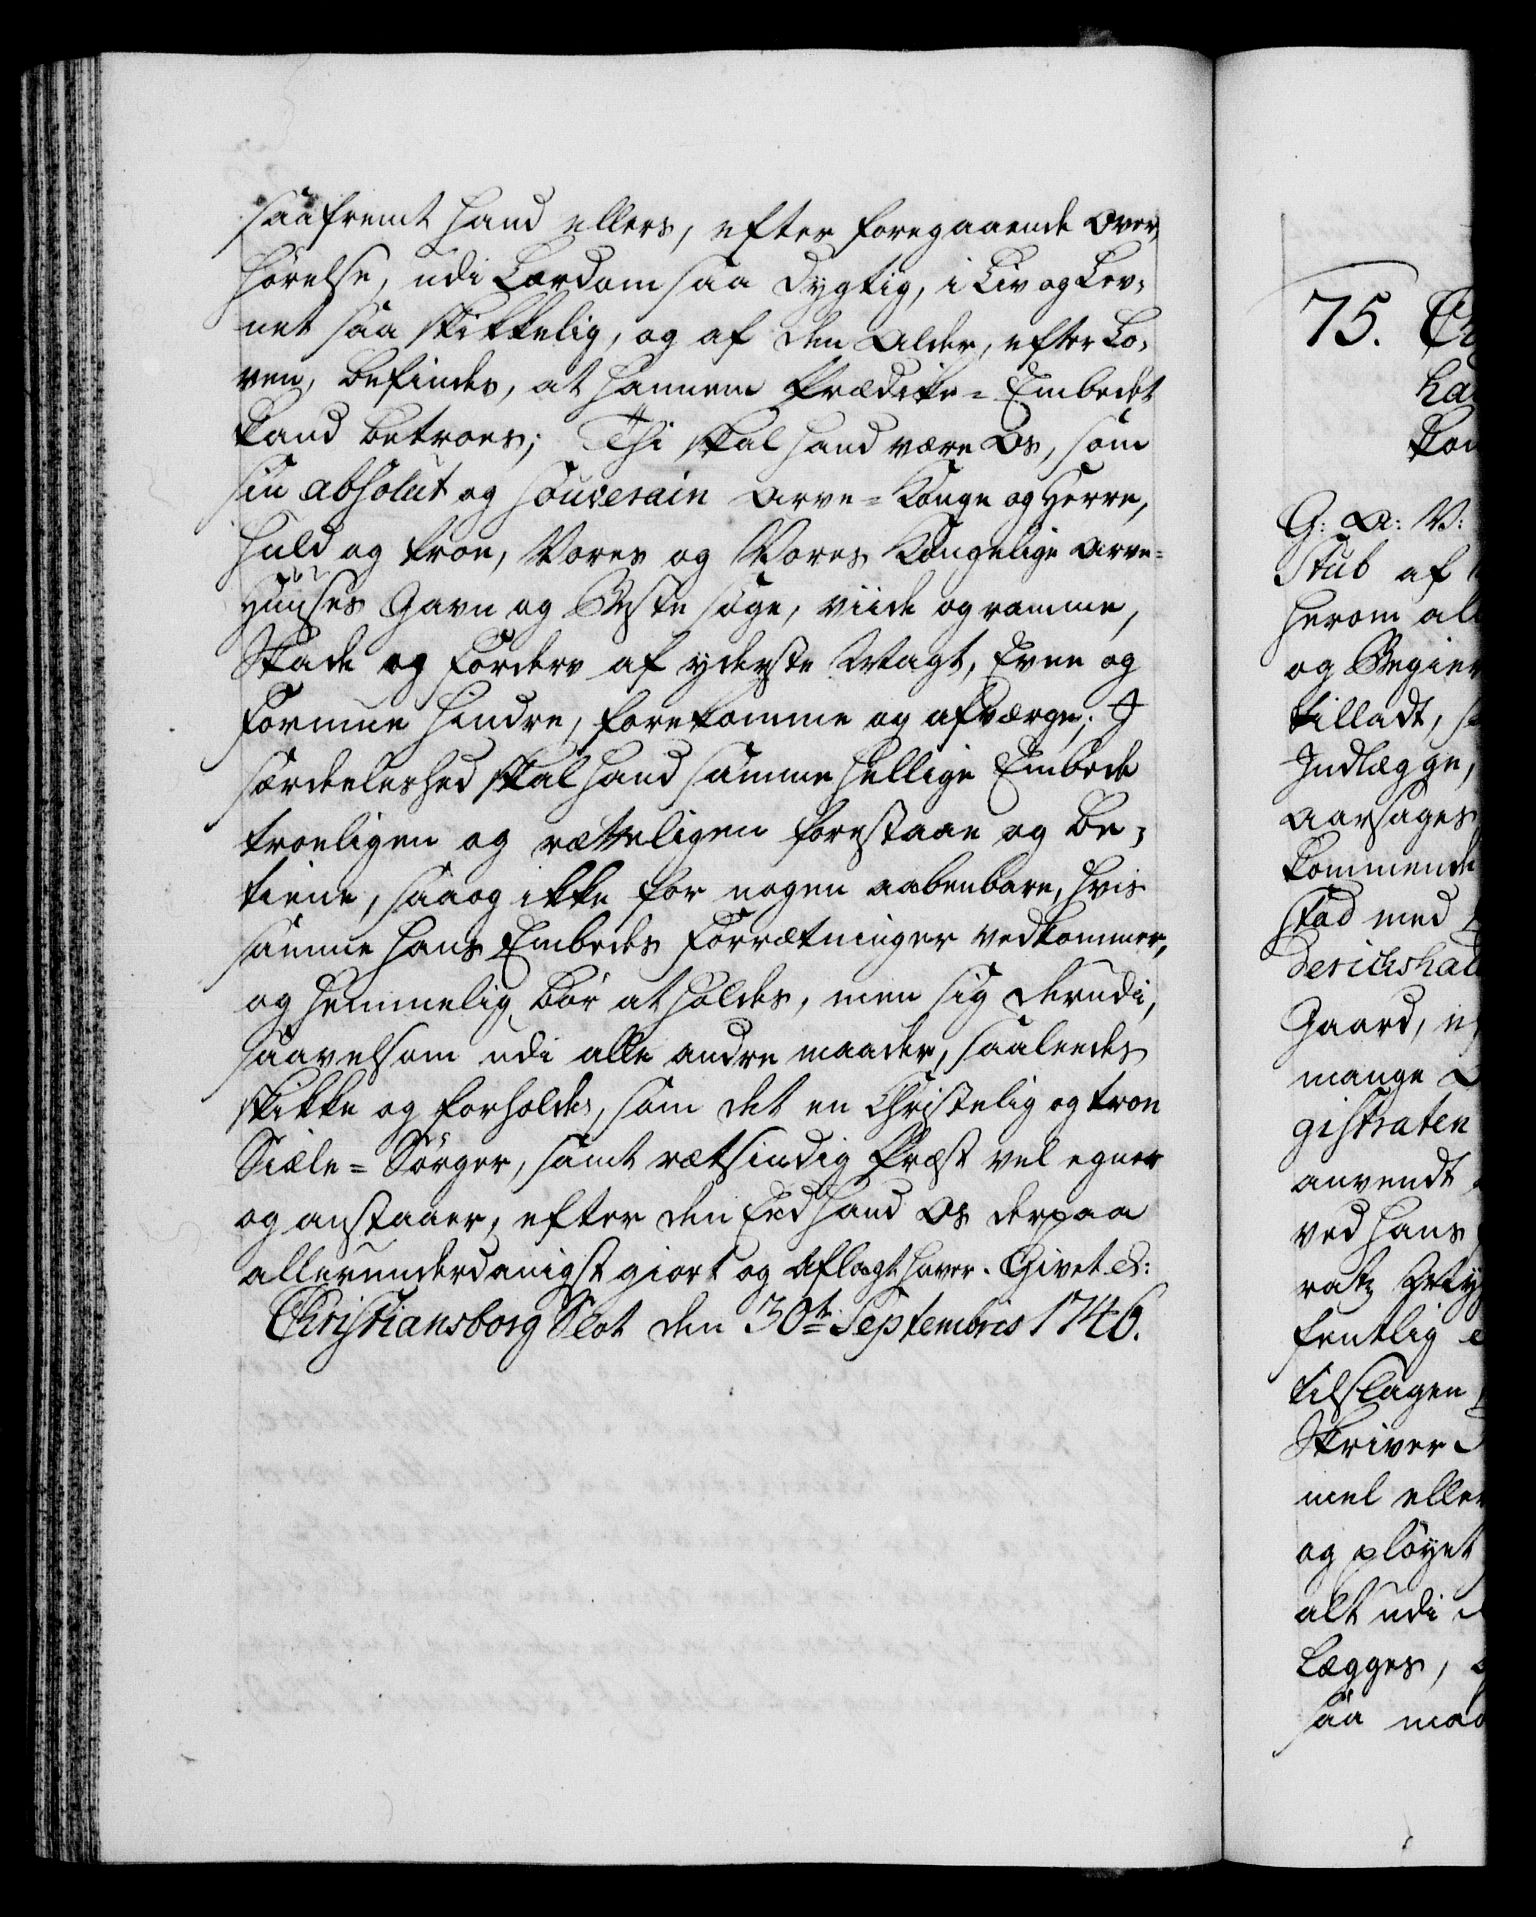 saafremt hand ellers, efter foregaaende Over,
hørelse, udi Lærdom saa dygtig, i Liv og Lev,
net saa skikkelig, og af den Alder, efter Lo,
ven, befindes, at hannem Prædike=Embedet
kand betroes; Thi skal hand være Os, som
sin absolut og souverain Arve=Konge og Herre,
huld og troe, Vores og Vores Kongelige Arve=
Huuses Gavn og Beste søge, viide og ramme,
Skade og Forderv af yderste Magt, Evne og
Formue hindre, forekomme og afværge; I
særdeleshed skal hand samme hellige Embede
troeligen og rætteligen forestaae og be,
tiene, saaog ikke for nogen aabenbare, hvis
samme hans Embedes Forrætninger vedkommer,
og hemmelig bør at holdes, men sig derudi,
saavelsom udi alle andre maader, saaleedes
skikke og forholde, som det en Christelig og troe
Siæle=Sørger, samt rætsindig Præst vel egner
og anstaaer, efter den Eed hand Os derpaa
allerunderdanigst giort og aflagt haver. Givet &:
Christiansborg Slot den 30te Septembris 1746.
75.
G: A: V:
Stub af
herom al
og Begier
tilladt,
Indlægge,
aarsages
kommende
stad med
derichshal
Gaard,
mange
gistraten
anvendt
ved hans
ratz
fentlig
tilslagen
Skriver
mel eller
og pløyet
alt udi
Lægges,
saa